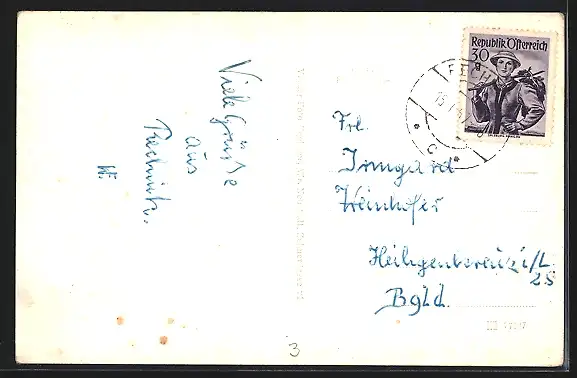 Viele Grüsse
aus
Rechnitz.
W.
Republik Österreich
30
g
Frl.
Irmgard
Weinhofer
Heiligenkreuz i/L.
25
Bgld.
3